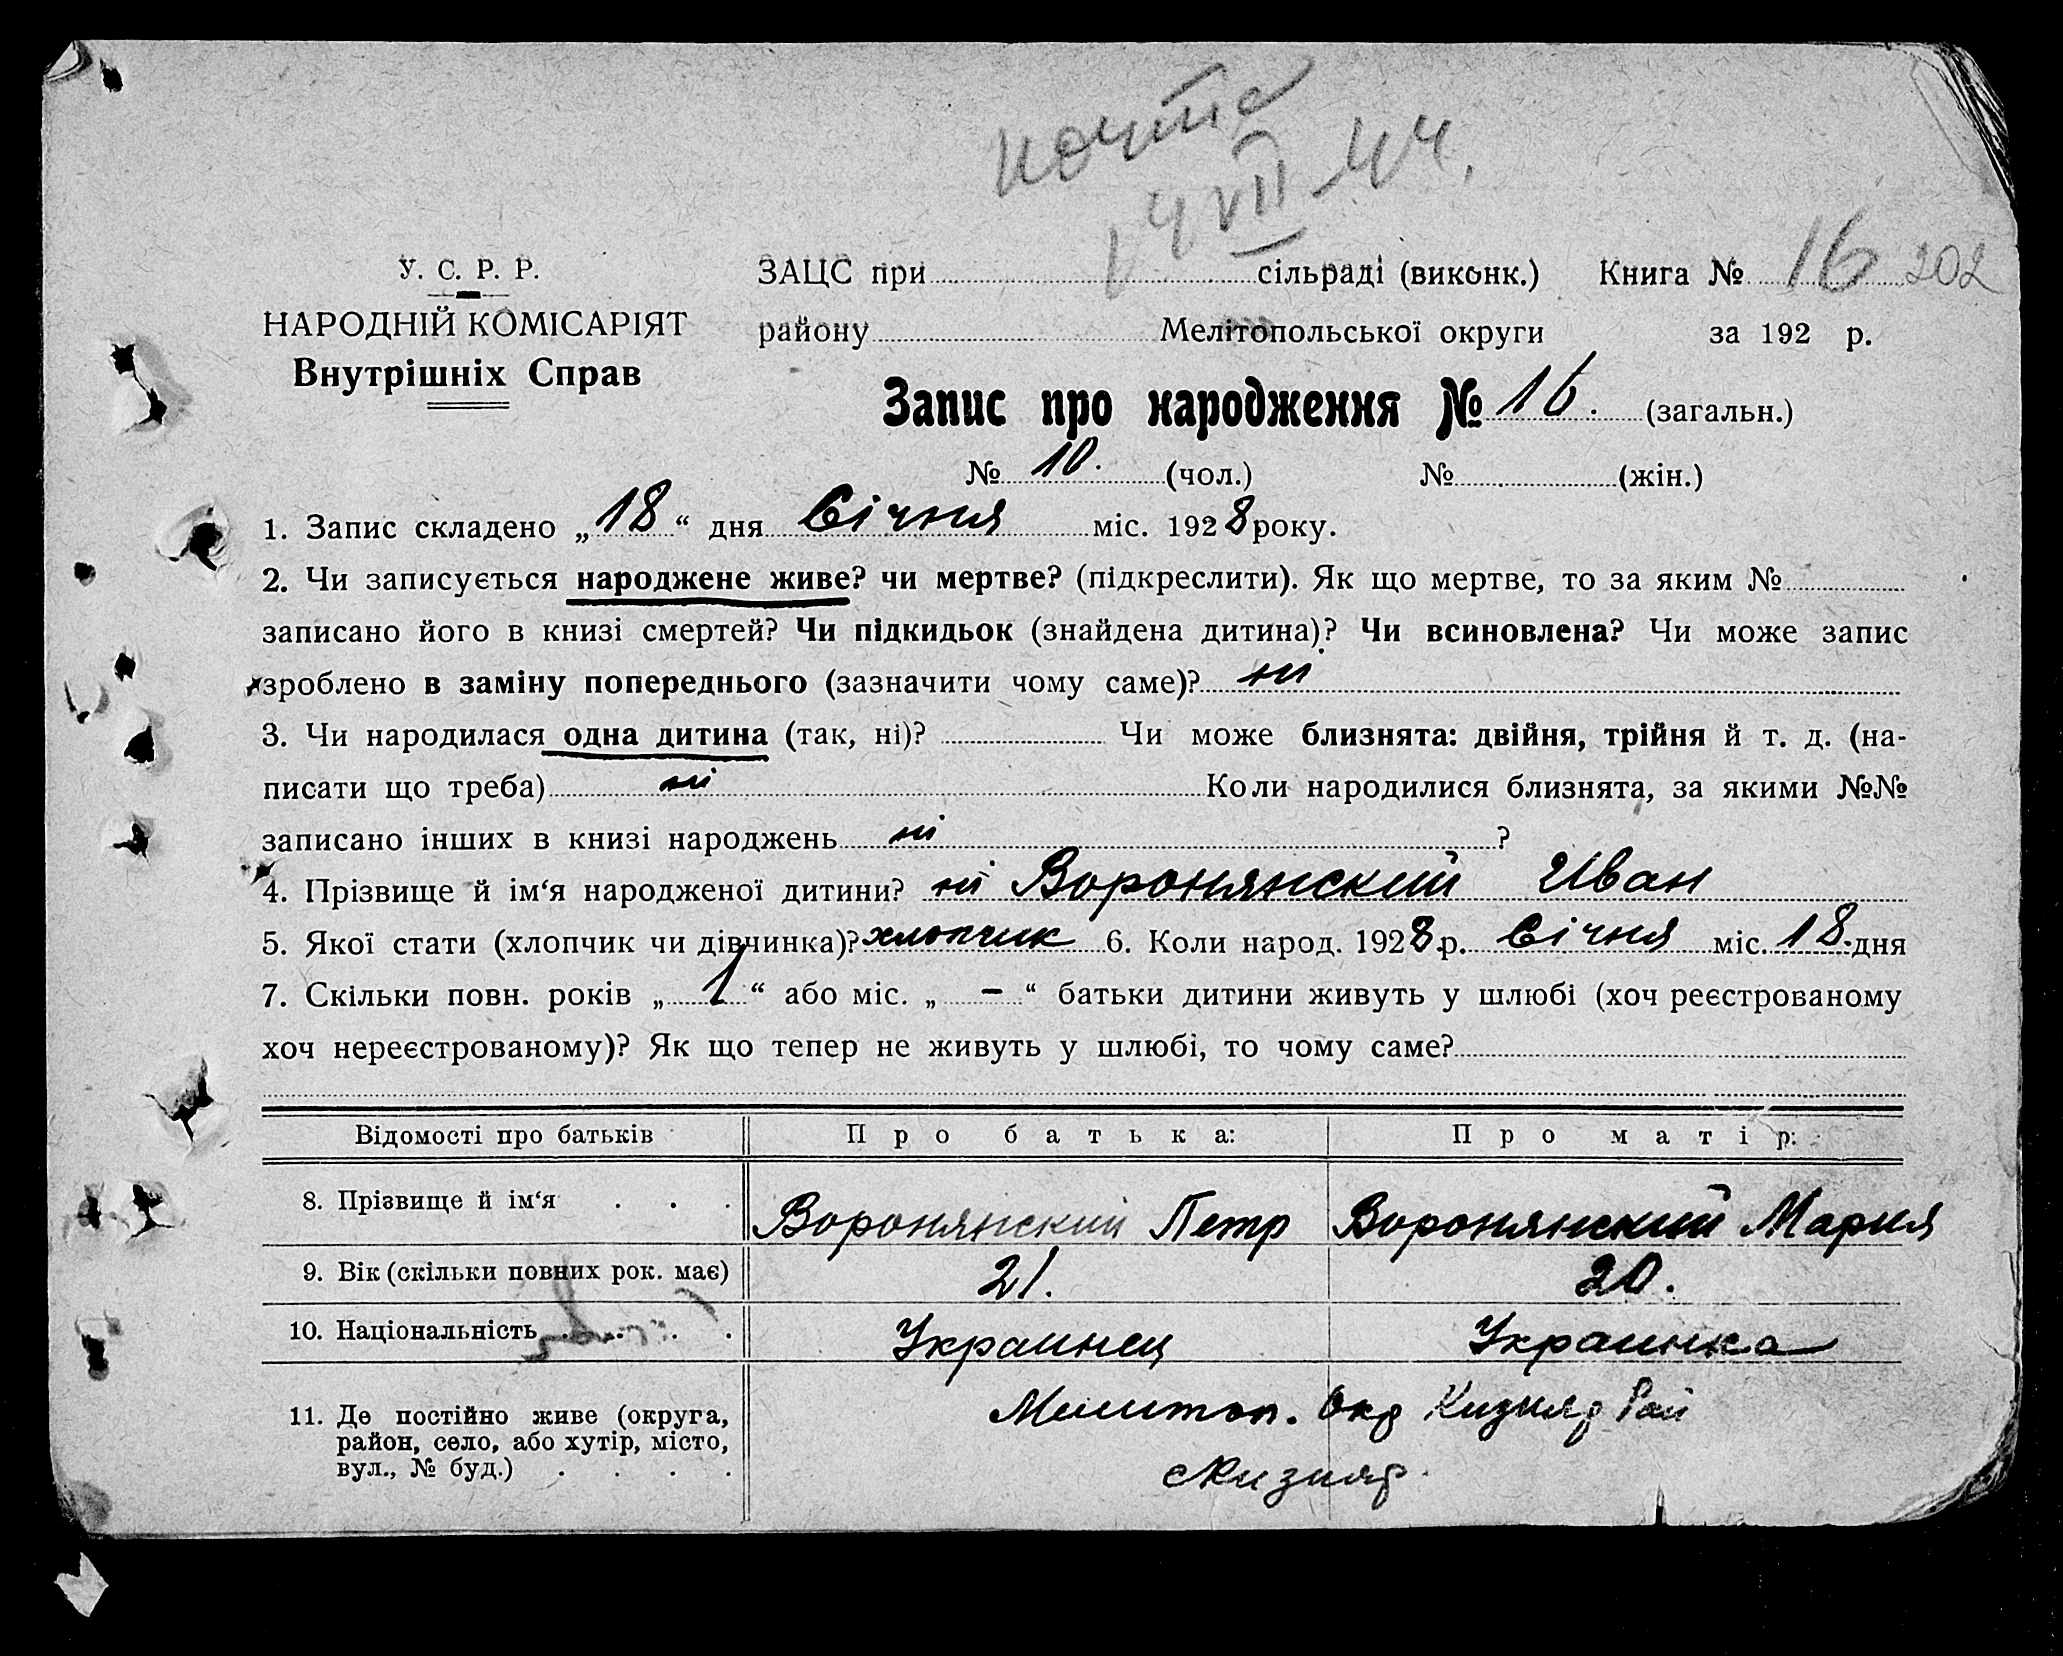 почта
14 VII-44.
У. С. Р. Р.
НАРОДНІЙ КОМІСАРІЯТ
Внутрішніх Справ
ЗАЦС при сільраді (виконк.) Книга № 16 202
району Мелітопольської округи за 192 р.
Запис про народження № 16. (загальн.)
№ 10. (чол.) № (жін.)
1. Запис складено „18“ дня Січня міс. 1928 року.
2. Чи записується народжене живе? чи мертве? (підкреслити). Як що мертве, то за яким №
записано його в книзі смертей? Чи підкидьок (знайдена дитина)? Чи всиновлена? Чи може запис
зроблено в заміну попереднього (зазначити чому саме)? ні
3. Чи народилася одна дитина (так, ні)? Чи може близнята: двійня, трійня й т. д. (на-
писати що треба) ні Коли народилися близнята, за якими №№
записано інших в книзі народжень ні ?
4. Прізвище й ім‘я народженої дитини? ні Воронянский Иван
5. Якої стати (хлопчик чи дівчинка)? хлопчик 6. Коли народ. 1928 р. Січня міс. 18. дня
7. Скільки повн. років „1“ або міс. „—“ батьки дитини живуть у шлюбі (хоч реєстрованому
хоч нереєстрованому)? Як що тепер не живуть у шлюбі, то чому саме?
Відомості про батьків Про батька: Про матір:
8. Прізвище й ім‘я . . . Воронянский Петр Воронянский Мария
9. Вік (скільки повних рок. має) 21. 20.
10. Національність . . . . Украинец Украинка
11. Де постійно живе (округа,
район, село, або хутір, місто,
вул., № буд.) . . . .
Мелитоп. Окр Кизияр Рай
с Кизияр.